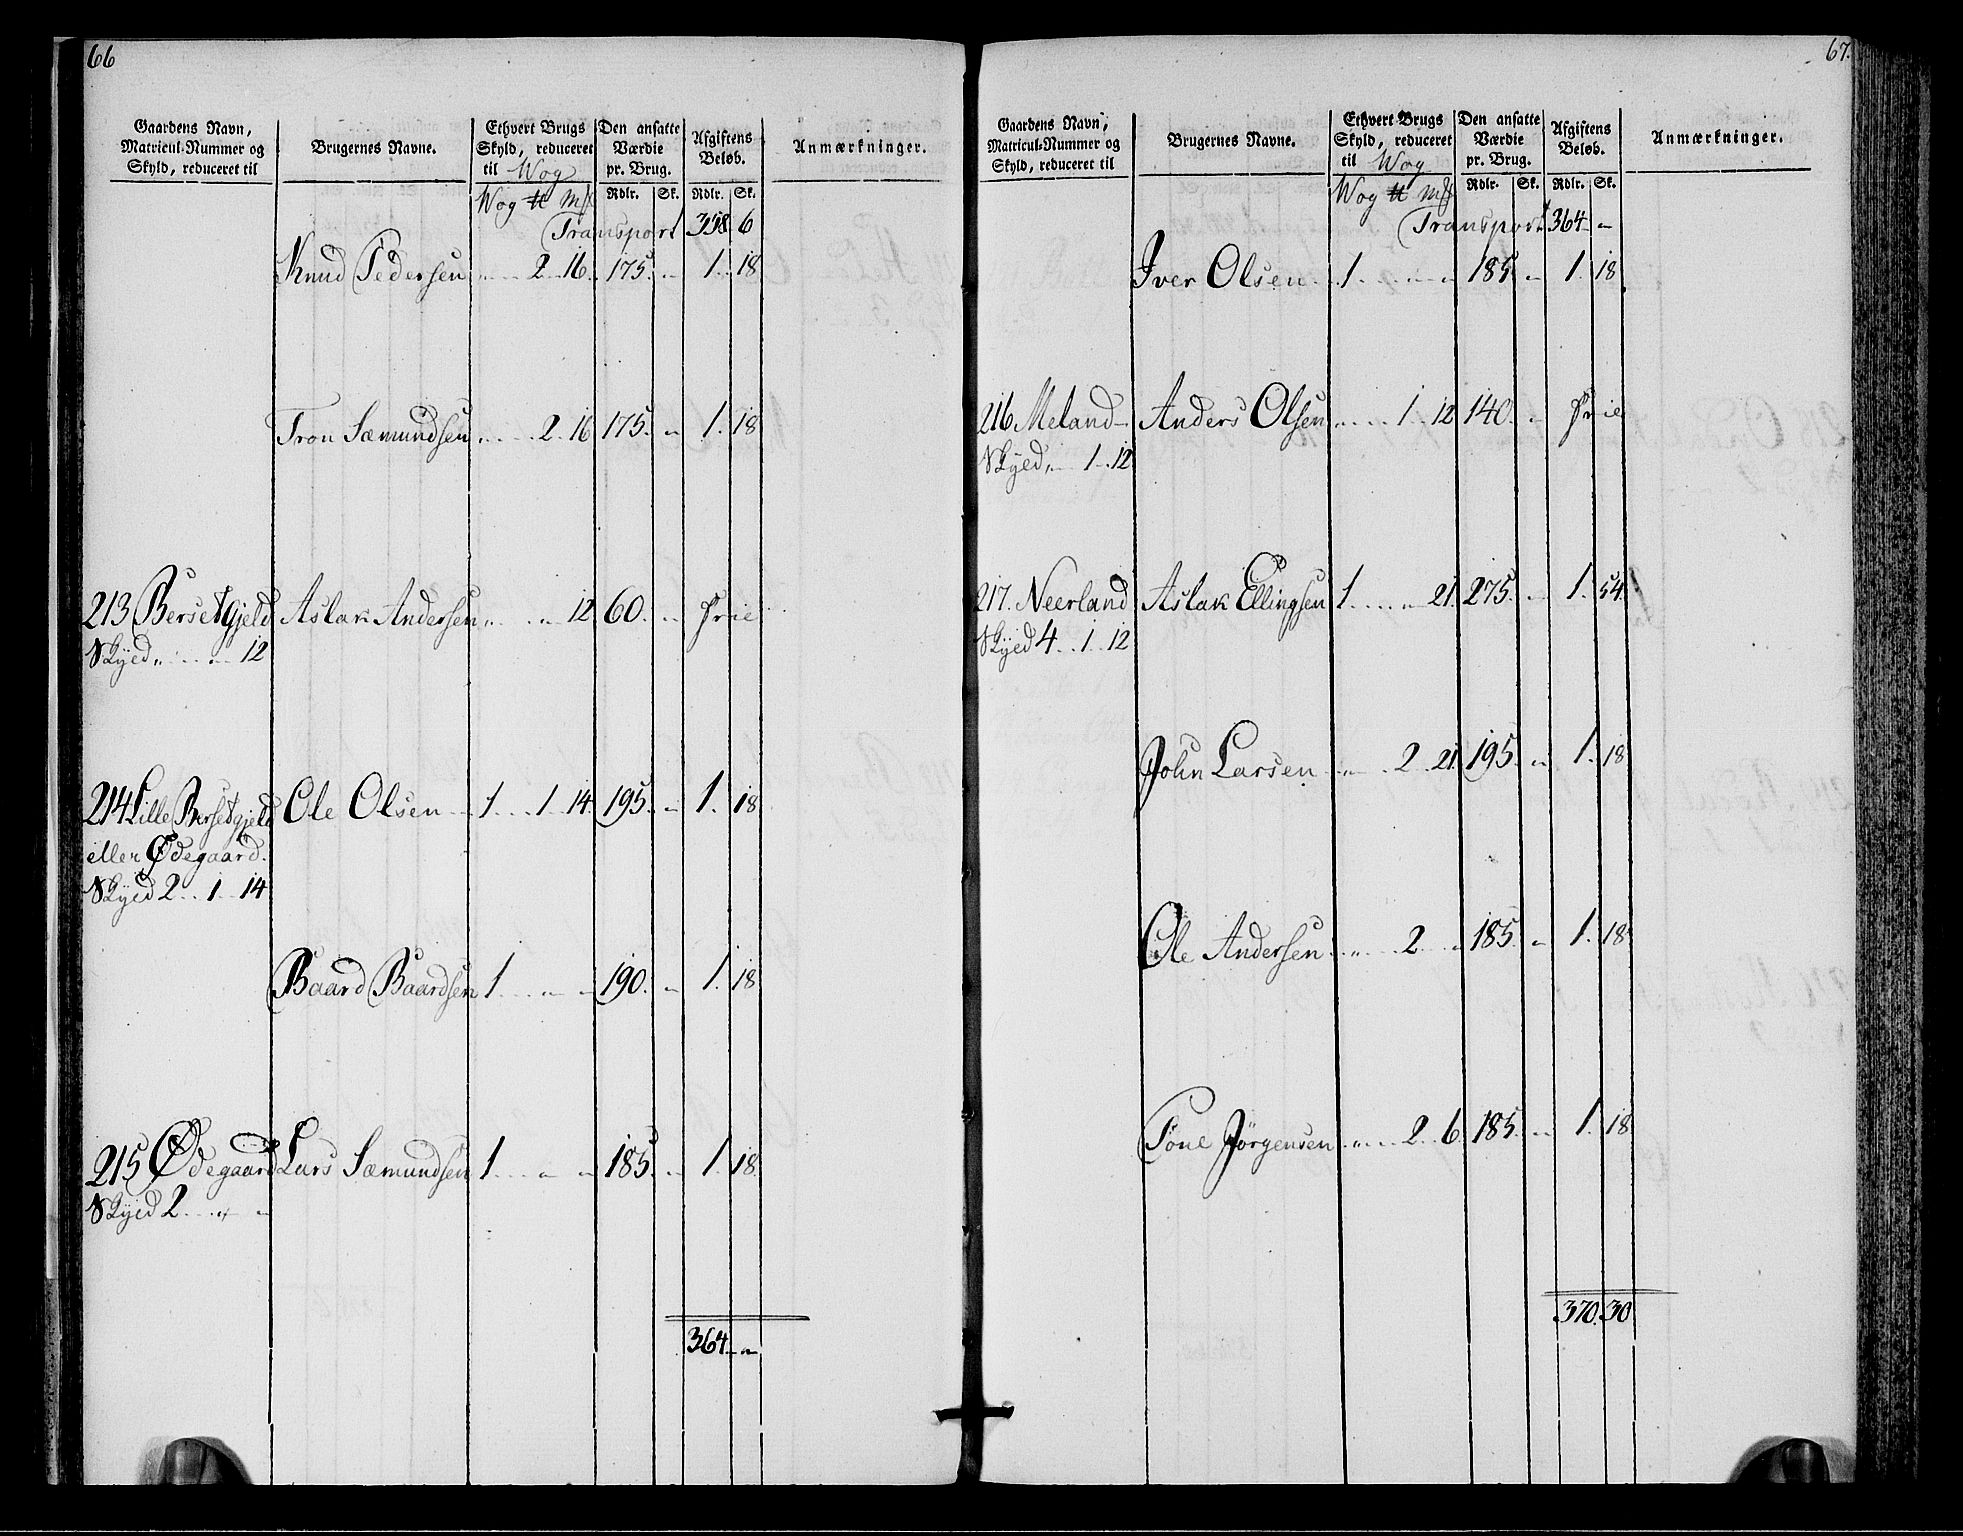 66
Gaardens Navn, Matricul-Nummer og Skyld, reduceret til | Brugernes Navne. | Ethvert Brugs Skyld, reduceret til Wog | Den ansatte Værdie pr. Brug. | Afgiftens Beløb. | Anmærkninger.
Wog ℔ m℔ | Rdlr. | Sk. | Rdlr. | Sk.
Transport 358 6
Knud Pedersen „ 2 16 175 „ 1 18
Tron Sæmundsen „ 2 16 175 „ 1 18
213 Bersetgjeld Aslak Andersen „ „ 12 60 „ frie
Skyld „ „ 12
214 Lille Bersetgjeld Ole Olsen 1 1 14 195 „ 1 18
eller Ødegaard.
Skyld 2 1 14
Baard Baardsen 1 „ „ 190 „ 1 18
215 Ødegaard Lars Sæmundsen 1 „ „ 185 „ 1 18
Skyld 2 „ „
364 „
67.
Gaardens Navn, Matricul-Nummer og Skyld, reduceret til | Brugernes Navne. | Ethvert Brugs Skyld, reduceret til Wog | Den ansatte Værdie pr. Brug. | Afgiftens Beløb. | Anmærkninger.
Wog ℔ m℔ | Rdlr. | Sk. | Rdlr. | Sk.
Transport 364 „
Iver Olsen 1 „ „ 185 „ 1 18
216 Meland Anders Olsen „ 1 12 140 „ frie
Skyld „ 1 12
217. Neerland Aslak Ellingsen 1 „ 21 275 „ 1 54
Skyld 4 1 12
John Larsen „ 2 21 195 „ 1 18
Ole Andersen „ 2 „ 185 „ 1 18
Tone Jørgensen „ 2 6 185 „ 1 18
370 30